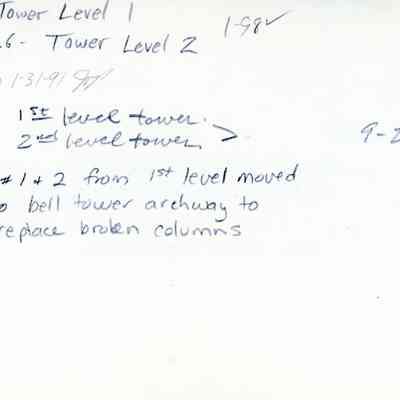 Tower Level 1
6- Tower Level 2
1-98✓
1-31-91
1st level tower.
2nd level tower >
9-2
#1+2 from 1st level moved
o bell tower archway to
replace broken columns